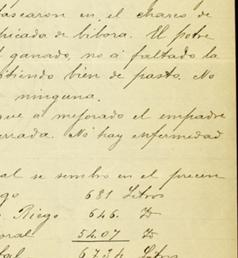 ascaron en el charco de
picado de bibora. El potre
ganado, no á faltado la
tiendo bien de pasto. No
ninguna.
que á mejorado el empadre
errada. No hay enfermedad
al se sembro en el presen
go 681 Litros
Riego 646. Id
oral 5407 Id
al 6734 Litros